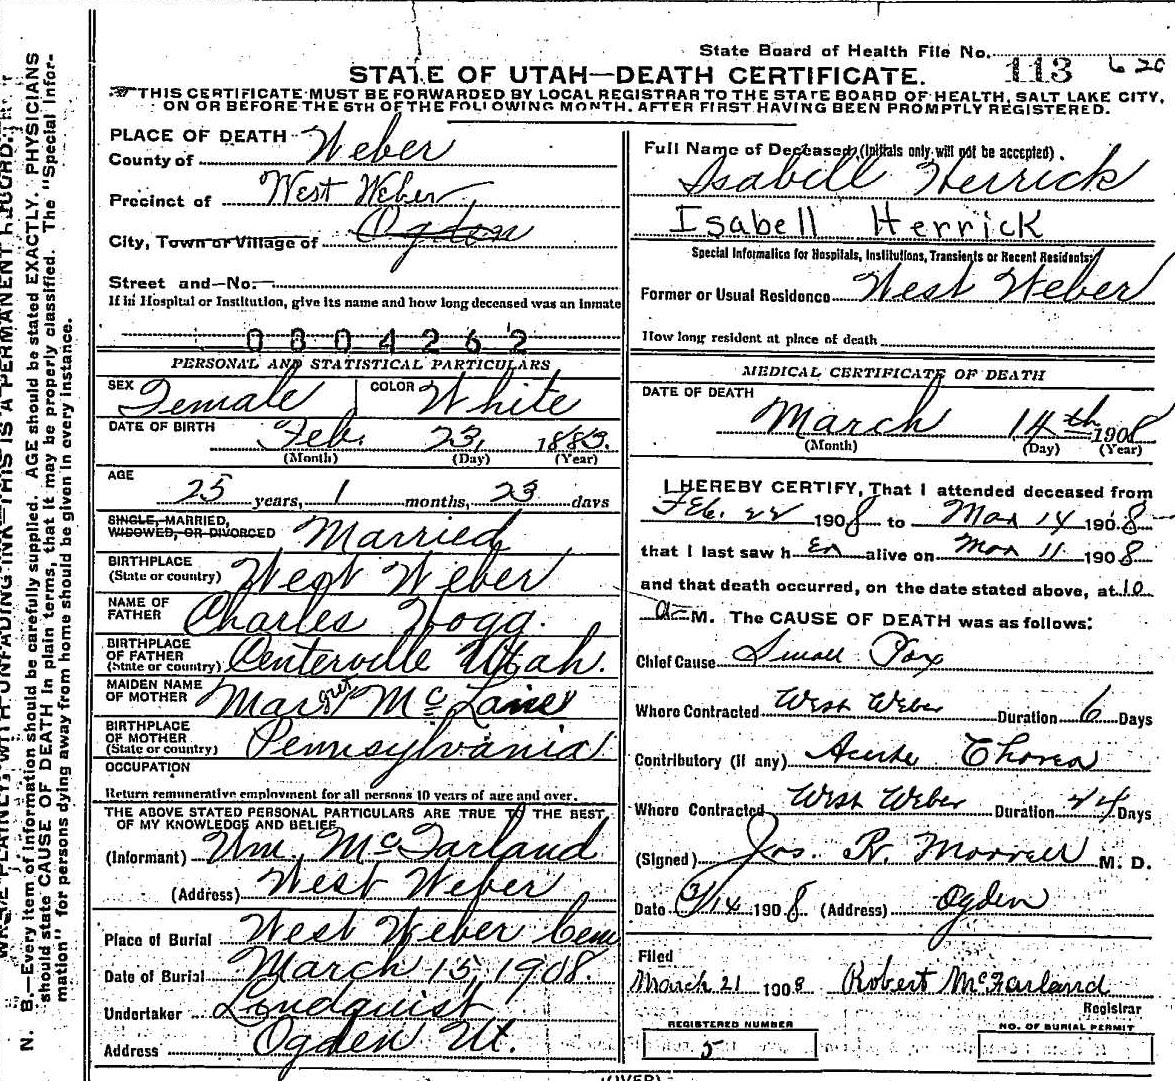 State Board of Health File No. 113 620
STATE OF UTAH—DEATH CERTIFICATE.
THIS CERTIFICATE MUST BE FORWARDED BY LOCAL REGISTRAR TO THE STATE BOARD OF HEALTH, SALT LAKE CITY,
ON OR BEFORE THE 5TH OF THE FOLLOWING MONTH. AFTER FIRST HAVING BEEN PROMPTLY REGISTERED.
PLACE OF DEATH
County of Weber
Precinct of West Weber
City, Town or Village of Ogden
Street and No.
If in Hospital or Institution, give its name and how long deceased was an inmate
0804262
PERSONAL AND STATISTICAL PARTICULARS
SEX Female COLOR White
DATE OF BIRTH Feb. 23, 1883.
(Month) (Day) (Year)
AGE
25 years, 1 months, 23 days
SINGLE, MARRIED,
WIDOWED, OR DIVORCED Married
BIRTHPLACE
(State or country) West Weber
NAME OF
FATHER Charles Hogg.
BIRTHPLACE
OF FATHER
(State or country) Centerville Utah.
MAIDEN NAME
OF MOTHER Margret Mc Lane
BIRTHPLACE
OF MOTHER
(State or country) Pennsylvania
OCCUPATION
Return remunerative employment for all persons 10 years of age and over.
THE ABOVE STATED PERSONAL PARTICULARS ARE TRUE TO THE BEST
OF MY KNOWLEDGE AND BELIEF
(Informant) Wm. McFarland
(Address) West Weber
Place of Burial West Weber Cem
Date of Burial March 15, 1908.
Undertaker Lindquist
Address Ogden Ut.
Full Name of Deceased, (Initials only will not be accepted).
Isabell Herrick
Isabell Herrick
Special Information for Hospitals, Institutions, Transients or Recent Residents:
Former or Usual Residence West Weber
How long resident at place of death
MEDICAL CERTIFICATE OF DEATH
DATE OF DEATH
March 14th 1908
(Month) (Day) (Year)
I HEREBY CERTIFY, That I attended deceased from
Feb. 22 1908 to Mar 14 1908
that I last saw her alive on Mar 11 1908
and that death occurred, on the date stated above, at 10
a M. The CAUSE OF DEATH was as follows:
Chief Cause Small Pox
Where Contracted West Weber Duration 6 Days
Contributory (if any) Acute Chorea
Where Contracted West Weber Duration 24 Days
(Signed) Jos. R. Morrell M. D.
Date 3/14 1908 (Address) Ogden
Filed
March 21 1908 Robert McFarland
Registrar
REGISTERED NUMBER
5
NO. OF BURIAL PERMIT
(OVER)
WRITE PLAINLY, WITH UNFADING INK—THIS IS A PERMANENT RECORD.
N. B.—Every item of information should be carefully supplied. AGE should be stated EXACTLY. PHYSICIANS
should state CAUSE OF DEATH in plain terms, that it may be properly classified. The "Special Infor-
mation" for persons dying away from home should be given in every instance.